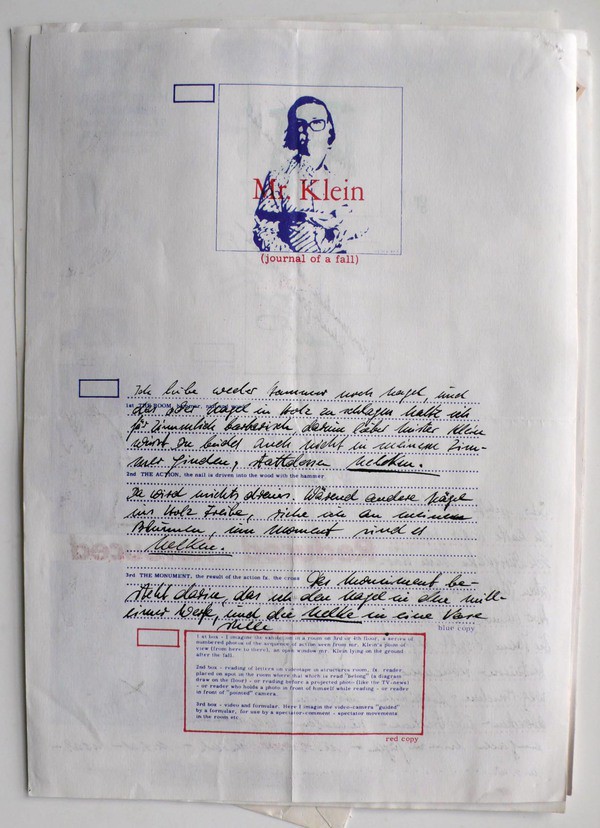 Mr. Klein
(journal of a fall)
Ich liebe weder Hammer noch Nagel, und
1st THE ROOM
den Nagel in Holz zu schlagen halte ich
für ziemlich barbarisch, darum lieber Mister Klein
wirst Du beides auch nicht in meinem Zim-
mer finden, stattdessen Nelken.
2nd THE ACTION, the nail is driven into the wood with the hammer
Da wird nichts draus. Während andere Nägel
ins Holz treibe, ziehe ich an meinen
Blumen, im Moment sind es
Nelken.
3rd THE MONUMENT, the result of the action fx. the cross
Das Monument be-
steht darin, das ich den Nagel in den Müll-
eimer werfe, und die Nelke in eine Vase
stelle
blue copy
1st box - I imagine the exhibition in a room on 3rd or 4th floor, a series of
numbered photos of the sequence of action seen from mr. Klein's point of
view (from here to there), an open window mr. Klein lying on the ground
after the fall.
2nd box - reading of letters on videotape in structures room, fx reader
placed on spot in the room where that which is read "belong" (a diagram
draw on the floor) - or reading before a projected photo (like the TV-news)
- or reader who holds a photo in front of himself while reading - or reader
in front of camera.
3rd box - video and formular. Here I imagin the video-camera "guided"
by a formular, for use by a spectator-comment - spectator movements
in the room etc.
red copy